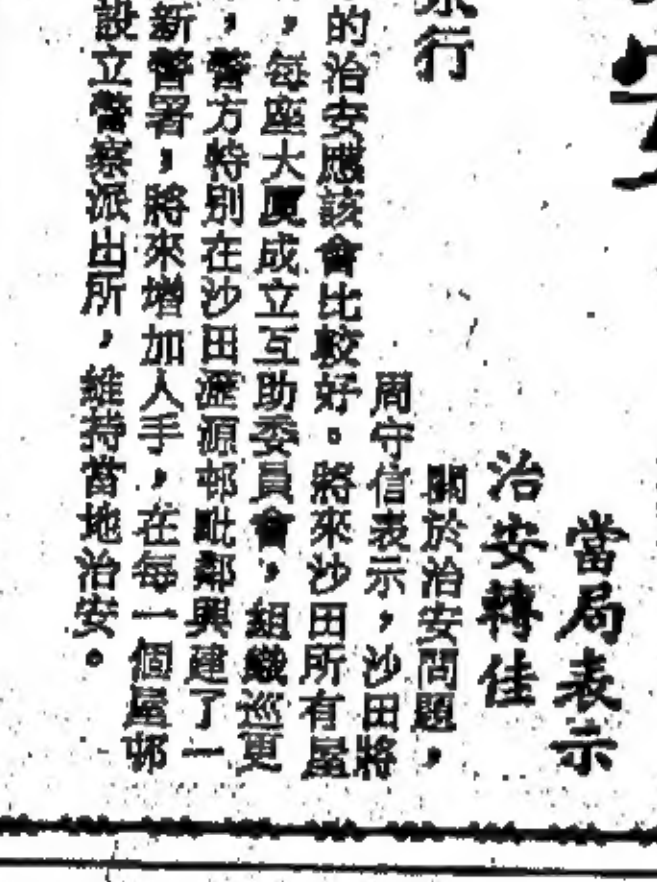 當局表示
治安轉佳
關於治安問題，
周守信表示，沙田將
的治安應該會比較好。將來沙田所有屋
，每座大厦成立互助委員會，組織巡更
，警方特別在沙田瀝源邨毗鄰興建了一
新警署，將來增加人手，在每一個屋邨
設立警察派出所，維持當地治安。
行